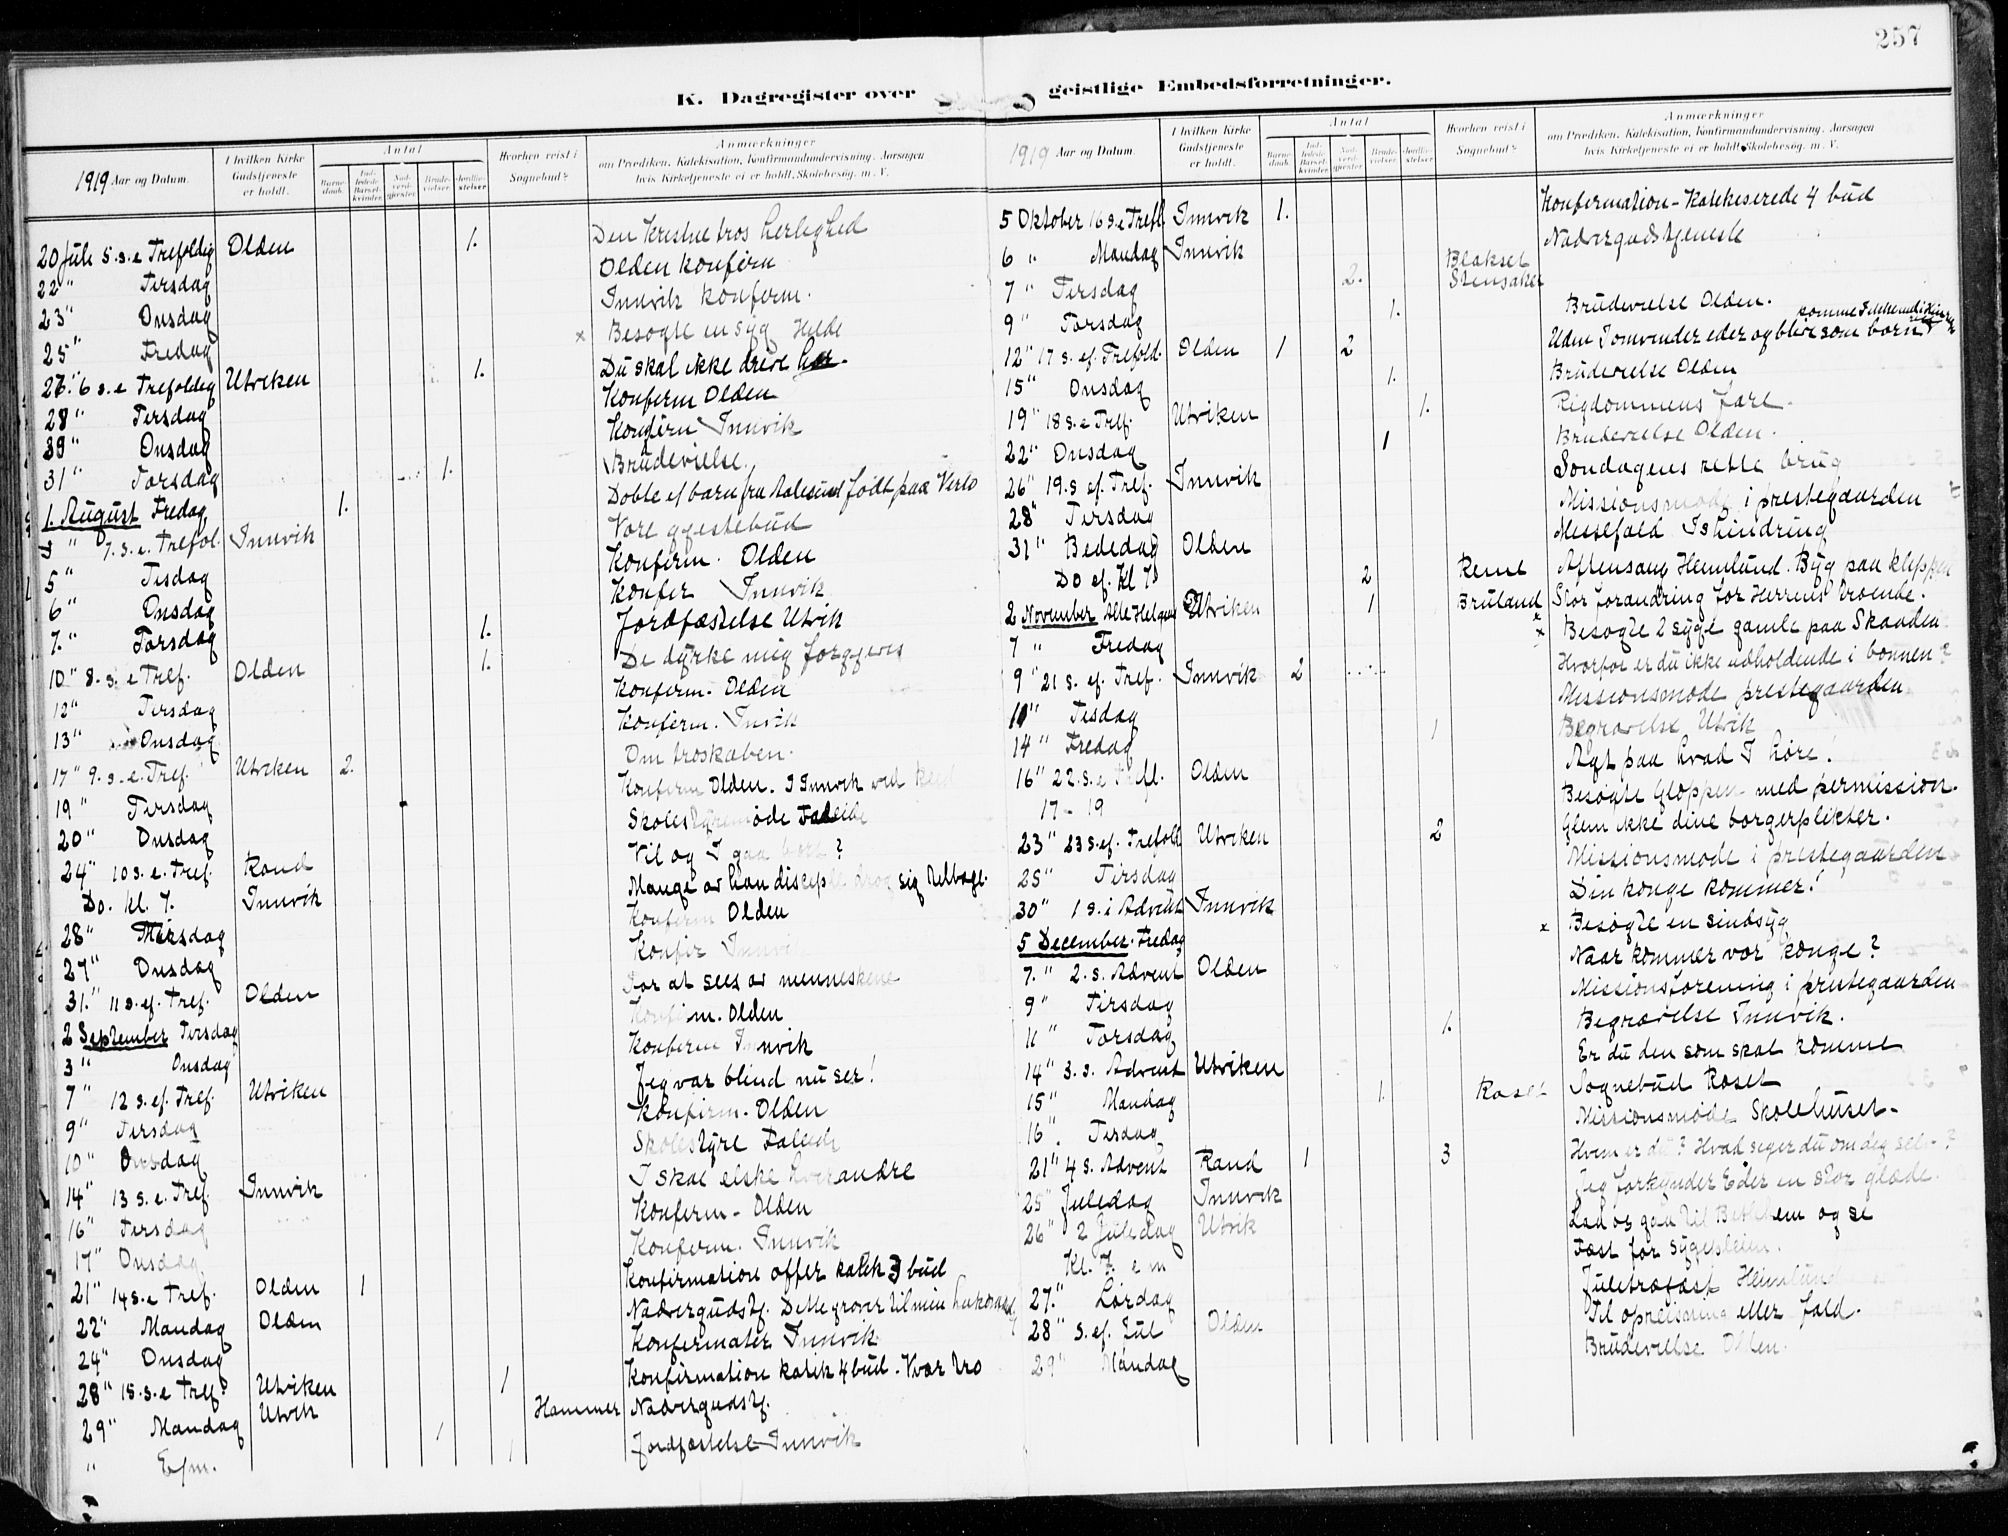 257
K. Dagregister over geistlige Embedsforretninger.
1919 Aar og Datum.
I hvilken Kirke Gudstjeneste er holdt.
Antal
Barne-daab.
Ind-ledede Barsel-kvinder.
Nad-verd-gjester.
Brude-vielser.
Jordfæ-stelser.
Hvorhen reist i Sognebud?
Anmærkninger
om Prædiken, Katekisation, Konfirmandundervisning, Aarsagen
hvis Kirketjeneste ei er holdt, Skolebesøg. m. V.
20 Juli 5. s. e Trefoldig Olden 1. Den kristne tros herlighed
22 " Tirsdag Olden konfirm
23 " Onsdag Innvik konfirm.
25 " Fredag x Besøgte en syg Hilde
27." 6 s. e Trefoldig Utviken 1. Du skal ikke drive hor.
28 " Tirsdag Konfirm Olden
30 " Onsdag Konfirm Innvik
31 " Torsdag 1. Brudevielse.
1. August Fredag 1. Døbte et barn fra Aalesund født paa Verlo
3 " 7. s. e. Trefol. Innvik Vore gjestebud
5 " Tisdag Konfirm. Olden
6 " Onsdag Konfir Innvik
7. " Torsdag 1. Jordfæstelse Utvik
10 " 8. s. e Tref. Olden 1. De dyrke mig forgjeves
12 " Tirsdag Konfirm. Olden
13 " Onsdag Konfirm. Invik
17 " 9. s. e. Tref. Utviken 2. Om troskaben.
19 " Tirsdag Konfirm Olden. I Innvik ved
20 " Onsdag Skolestyremøde Faleide
24 " 10 s. e. Tref. Rand Vil og I gaa bort?
Do. kl. 7. Innvik Mange av han disciple drog sig tilbage.
28 " Tirsdag Konfirm Olden
27 " Onsdag Konfir Innvik
31." 11 s. ef. Tref. Olden For at sees av menneskene
2 September Tirsdag Konfirm. Olden
3 " Onsdag Konfirm Innvik
7 " 12 s. ef. Tref. Utviken Jeg var blind nu ser!
9 " Tirsdag Konfirm. Olden
10 " Onsdag Skolestyre Faleide
14 " 13 s. e. Tref. Innvik I skal elske hverandre
16 " Tirsdag Konfirm - Olden
17 " Onsdag Konfirm. Innvik
21 " 14 s. e Tref. Olden 1 Konfirmation offer katek 3 bud
22 " Mandag Olden Nadvergudstj. Dette gjører til min hukom
24 " Onsdag Konfirmater Innvik
28 " 15. s. e Tref. Utviken 1 Konfirmation katik 4 bud. Vær tro
29 " Mandag Utvik 1 Hammer Nadvergudstj.
" Efm. 1 Jordfæstelse Innvik
1919 Aar og Datum.
I hvilken Kirke Gudstjeneste er holdt.
Antal
Barne-daab.
Ind-ledede Barsel-kvinder.
Nad-verd-gjester.
Brude-vielser.
Jordfæ-stelser.
Hvorhen reist i Sognebud?
Anmærkninger
om Prædiken, Katekisation, Konfirmandundervisning, Aarsagen
hvis Kirketjeneste ei er holdt, Skolebesøg. m. V.
5 Oktober 16 s. e Trefl. Innvik 1. Konfirmation - Katekeserede 4 bud
6 " Mandag Innvik Nadvergudstjeneste
7 " Tirsdag 2. Blakset Stensaker
9 " Torsdag 1. Brudevielse Olden.
12 " 17 s. ef. Trefold. Olden 1 2 Uden I omvender eder og blive som børn
15 " Onsdag 1. Brudevielse Olden
19 " 18 s. e Tref. Utviken 1. Rigdommens fare.
22 " Onsdag 1 Brudevielse Olden.
26 " 19. s ef. Tref. Innvik Søndagens rette brug
28 " Tirsdag Missionsmøde i prestegaarden
31 " Bededag Olden Messefald Ishindring
Do ef. Kl 7 2 Reme Aftensang Heimlund. Byg paa klippen
2 November Alle Helgens Utviken 1 Bruland Stor forandring for Herrens troende.
7 " Fredag x Besøgte 2 syge gamle paa Skaaden
9 " 21 s. ef. Tref. Innvik 2 Hvorfor er du ikke udholdende i bønnen?
11 " Tisdag Missionsmøde prestegaarden
14 " Fredag 1 Begravelse Utvik
16 " 22. s. e Trefl. Olden Agt paa hvad I høre!
17 - 19 Besøgte Gloppen med permission.
23 " 23 s. ef. Trefold Utviken 2 Glem ikke dine borgerplikter.
25 " Tirsdag Missionsmøde i prestegaarden
30 " 1 s. i Advent Innvik Din konge kommer!
5 December. Fredag x Besøgte en sindsyg
7. " 2. s. Advent Olden Naar kommer vor konge?
9 " Tirsdag Missionsforening i prestegaarden
11 " Torsdag 1. Begravelse Innvik.
14 " 3. s. Advent Utviken Er du den som skal komme
15 " Mandag 1. Roset Sognebud Roset
16 ". Tisdag Missionsmøde Skolehuset.
21 " 4 s. Advent Rand 1 3 Hvem er du? Hvad siger du om dig selv?
25 " Juledag Innvik Jeg forkynder Eder en stor glæde.
26 " 2 Juledag Utvik Lad os gaa til Bethlehem og se
Kl. 7. e m Fest for sygepleien.
27." Lørdag Juletræfest Heimlund
28 " s. ef. Jul Olden Til opreisning eller fald.
29 " Mandag Brudevielse Olden.